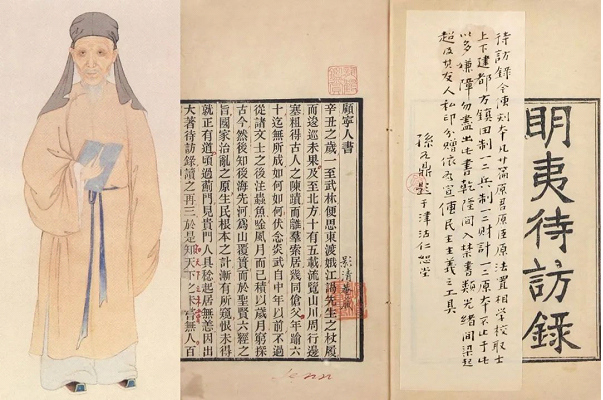 明夷待訪錄
待訪錄今便刻本凡廿篇原君原臣原法置相學校取士
上下建都方鎮田制一二三兵制一二三財計一二三原本不止于此
以多嫌障勿盡出此書乾隆間入禁書類光緒間梁啟
超及其友人私印分贈依為宣傳民主主義之工具
孫元鼎題于津沽仁恕堂
顧寧人書
辛丑之歲一至武林便思東渡娥江謁先生之杖履
而逡巡未果及至北方十有五載流覽山川周行邊
塞粗得古人之陳蹟而離羣索居幾同傖父年踰六
十迄無所成如何如何伏念炎武自中年以前不過
從諸文士之後注蟲魚唫風月而已積以歲月窮探
古今然後知後海先河爲山覆簣而於聖賢六經之
旨國家治亂之原生民根本之計漸有所窺恨未得
就正有道頃過薊門見貴門人具稔起居無恙因出
大著待訪錄讀之再三於是知天下之未嘗無人百